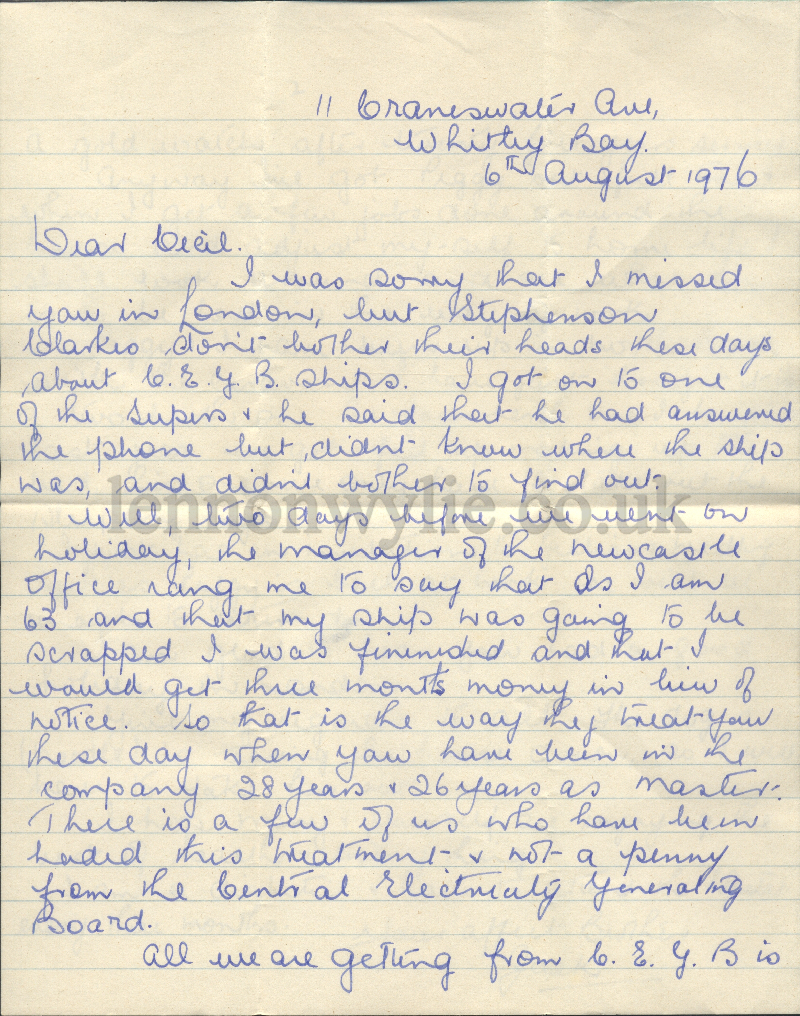 11 Craneswater Ave,
Whitley Bay.
6th August 1976
Dear Cecil.
I was sorry that I missed
you in London, but Stephenson
Clarkes don't bother their heads these days
about C.E.G.B. ships. I got on to one
of the Supers & he said that he had answered
the phone but didn't know where the ship
was, and didn't bother to find out.
lennonwylie.co.uk
Well, two days before we went on
holiday, the manager of the Newcastle
Office rang me to say that as I am
63 and that my ship was going to be
scrapped I was finished and that I
would get three months money in lieu of
notice. So that is the way they treat you
these day when you have been in the
company 28 years & 26 years as Master.
There is a few of us who have been
handed this treatment & not a penny
from the Central Electricity Generating
Board.
All we are getting from C.E.G.B is